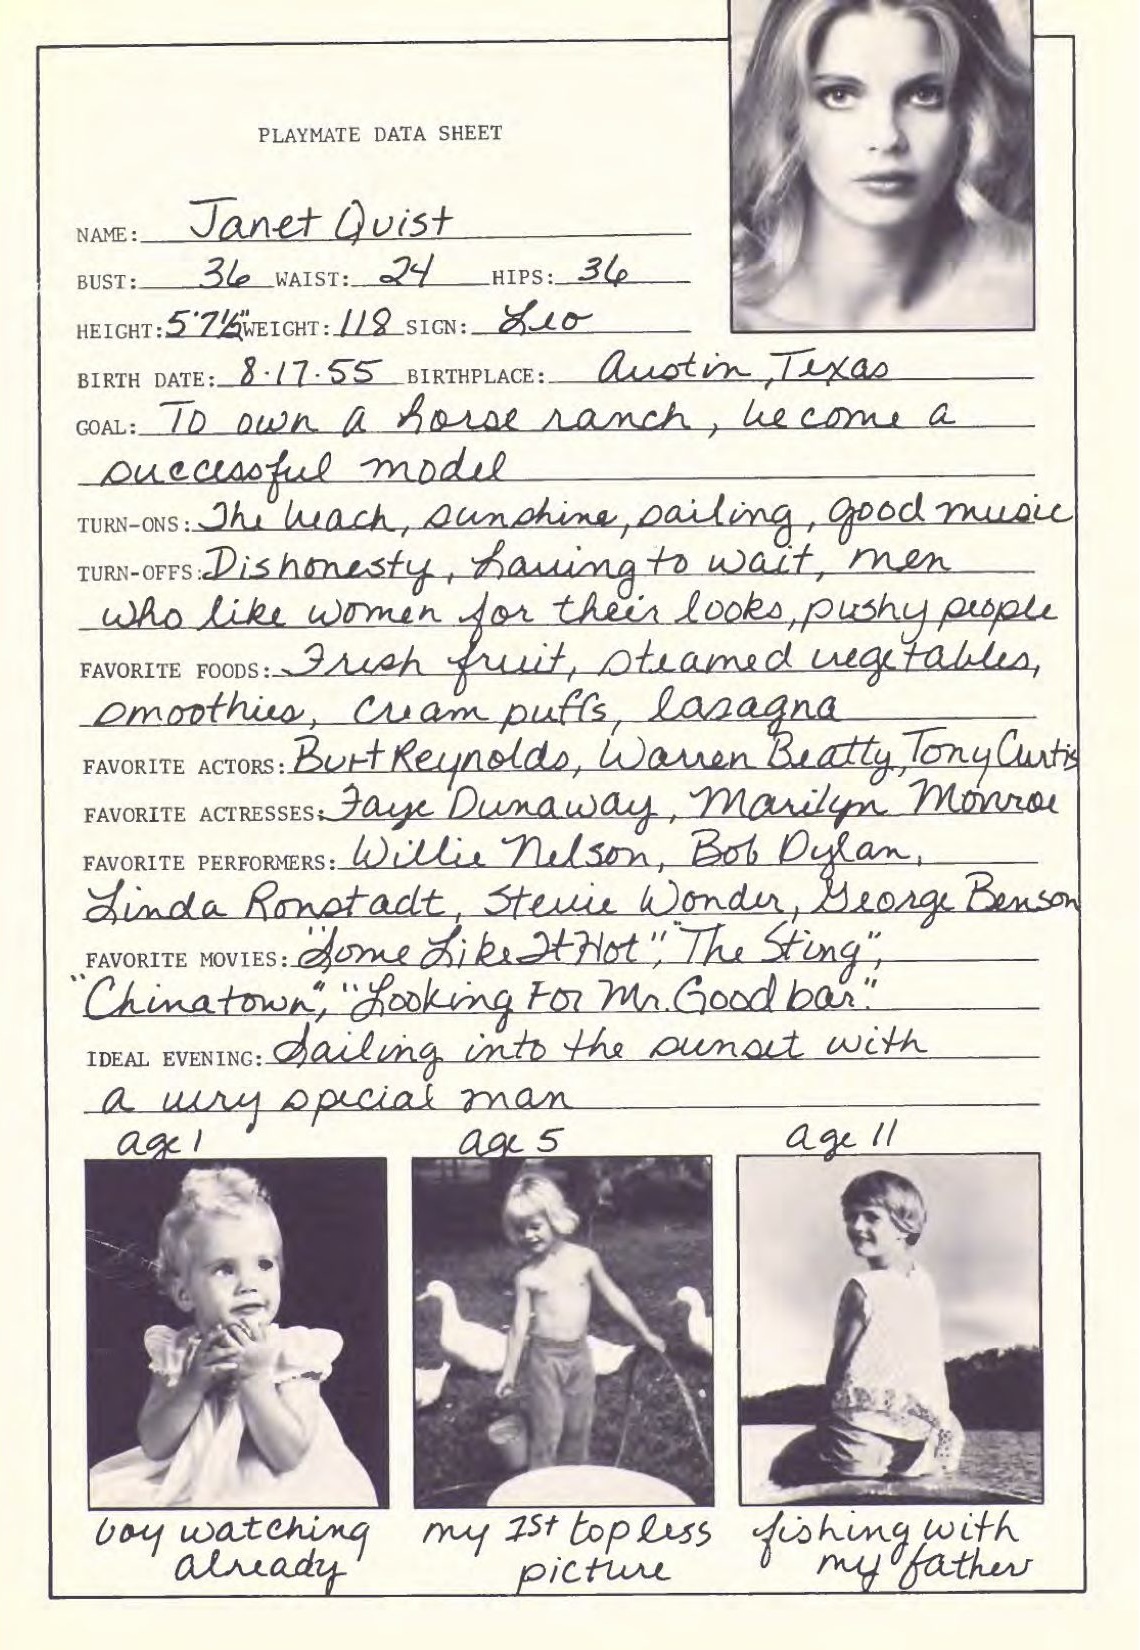 PLAYMATE DATA SHEET
NAME: Janet Quist
BUST: 36 WAIST: 24 HIPS: 36
HEIGHT: 5'7½" WEIGHT: 118 SIGN: Leo
BIRTH DATE: 8·17·55 BIRTHPLACE: Austin, Texas
GOAL: To own a horse ranch, become a
successful model
TURN-ONS: The beach, sunshine, sailing, good music
TURN-OFFS: Dishonesty, having to wait, men
who like women for their looks, pushy people
FAVORITE FOODS: Fresh fruit, steamed vegetables,
smoothies, cream puffs, lasagna
FAVORITE ACTORS: Burt Reynolds, Warren Beatty, Tony Curtis
FAVORITE ACTRESSES: Faye Dunaway, Marilyn Monroe
FAVORITE PERFORMERS: Willie Nelson, Bob Dylan,
Linda Ronstadt, Stevie Wonder, George Benson
FAVORITE MOVIES: "Some Like It Hot", "The Sting",
"Chinatown", "Looking For Mr. Goodbar."
IDEAL EVENING: Sailing into the sunset with
a very special man
age 1 age 5 age 11
boy watching already
my 1st topless picture
fishing with my father